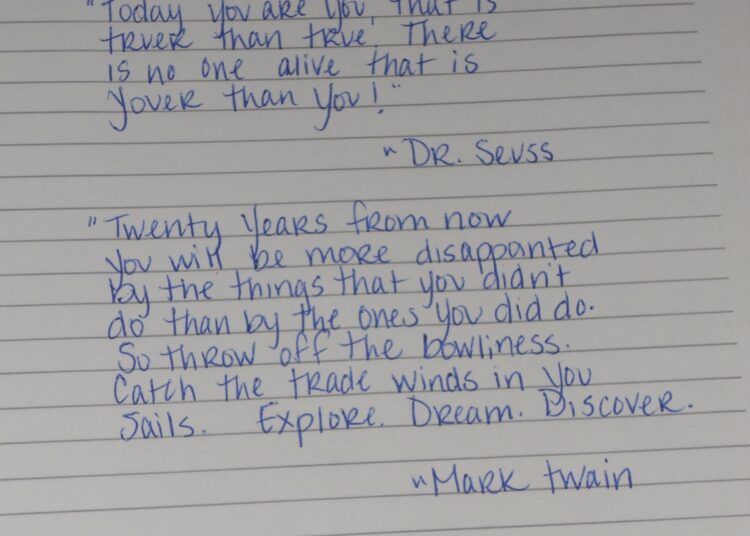 "Today you are you, that is
truer than true. There
is no one alive that is
youer than you!"
~ Dr. Seuss
"Twenty years from now
you will be more disappointed
by the things that you didn't
do than by the ones you did do.
So throw off the bowliness.
Catch the trade winds in you
Sails. Explore. Dream. Discover.
~Mark twain